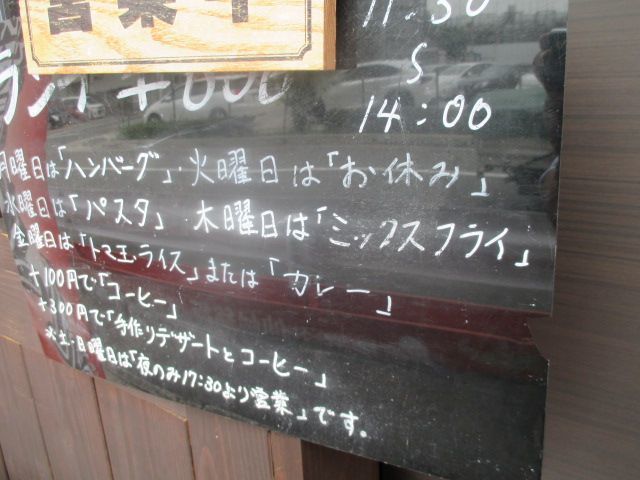 営業中
11:30
S
14:00
ランチ ¥600
月曜日は「ハンバーグ」・火曜日は「お休み」
水曜日は「パスタ」 木曜日は「ミックスフライ」
金曜日は「トマ玉ライス」または「カレー」
+100円で「コーヒー」
+300円で「手作りデザートとコーヒー」
※土・日曜日は「夜のみ17:30より営業」です。